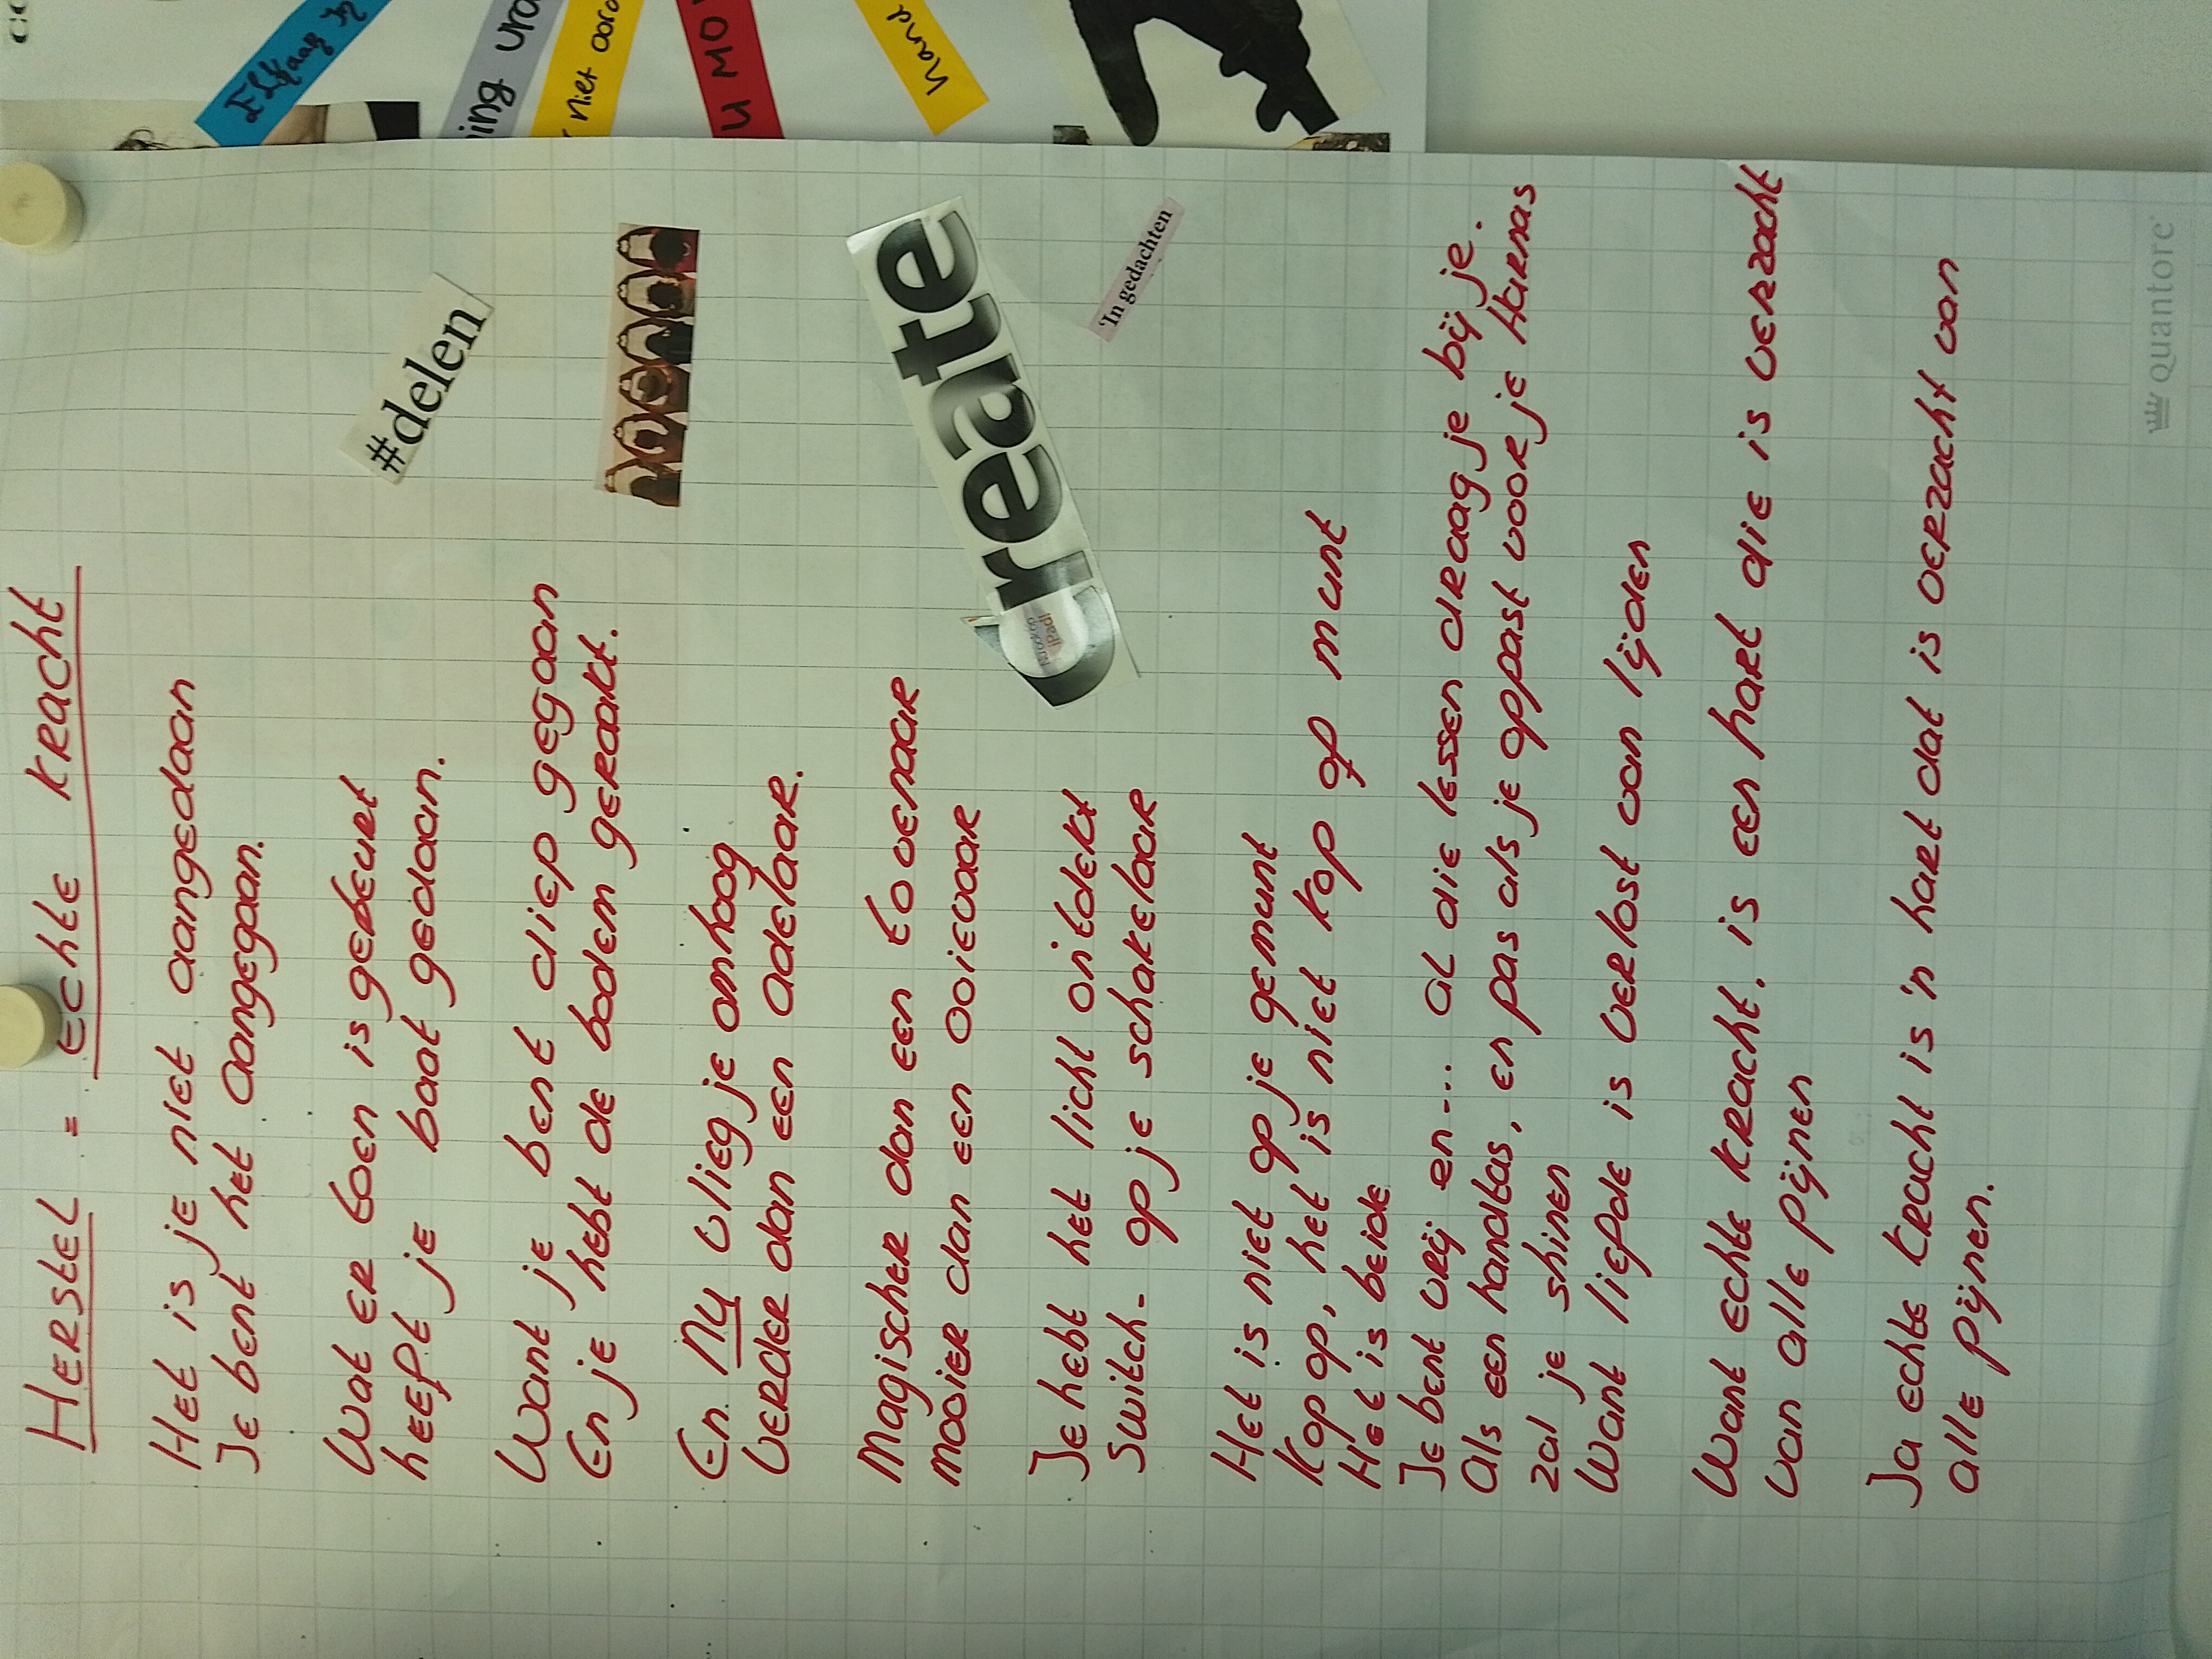 HERSTEL = ECHTE KRACHT
Het is je niet aangedaan
Je bent het aangegaan.
Wat er toen is gebeurt
heeft je baat gedaan.
Want je bent diep gegaan
En je hebt de bodem geraakt.
En nu vlieg je omhoog
verder dan een adelaar.
Magischer dan een tovenaar
mooier dan een ooievaar
Je hebt het licht ontdekt
Switch- op je schakelaar
Het is niet op je gemunt
Kop op, het is niet kop op munt
Het is beide
Je bent vrij en.... al die lessen draag je bij je.
Als een handtas, en pas als je oppast voor je Harnas
zal je shinen
Want liefde is verlost van lijden
Want echte kracht, is een hart die is verzacht
van alle pijnen
Ja echte kracht is 'n hart dat is verzacht van
alle pijnen.
#delen
create
'In gedachten
niet
hand
Quantore